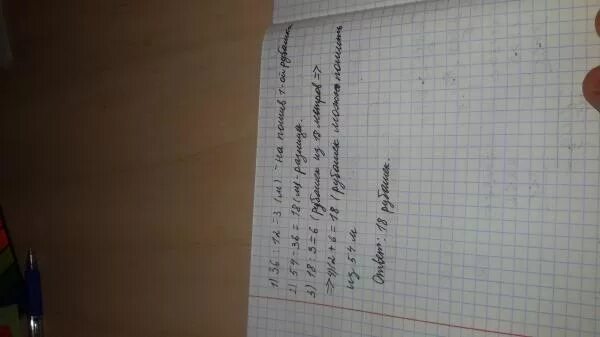 1) 36 : 12 = 3 (м) - на пошив 1-ой рубашки
2) 54 - 36 = 18 (м) - разница.
3) 18 : 3 = 6 (рубашек из 18 метров =>
=> 4) 12 + 6 = 18 (рубашек можно пошить
из 54 м
Ответ: 18 рубашек.